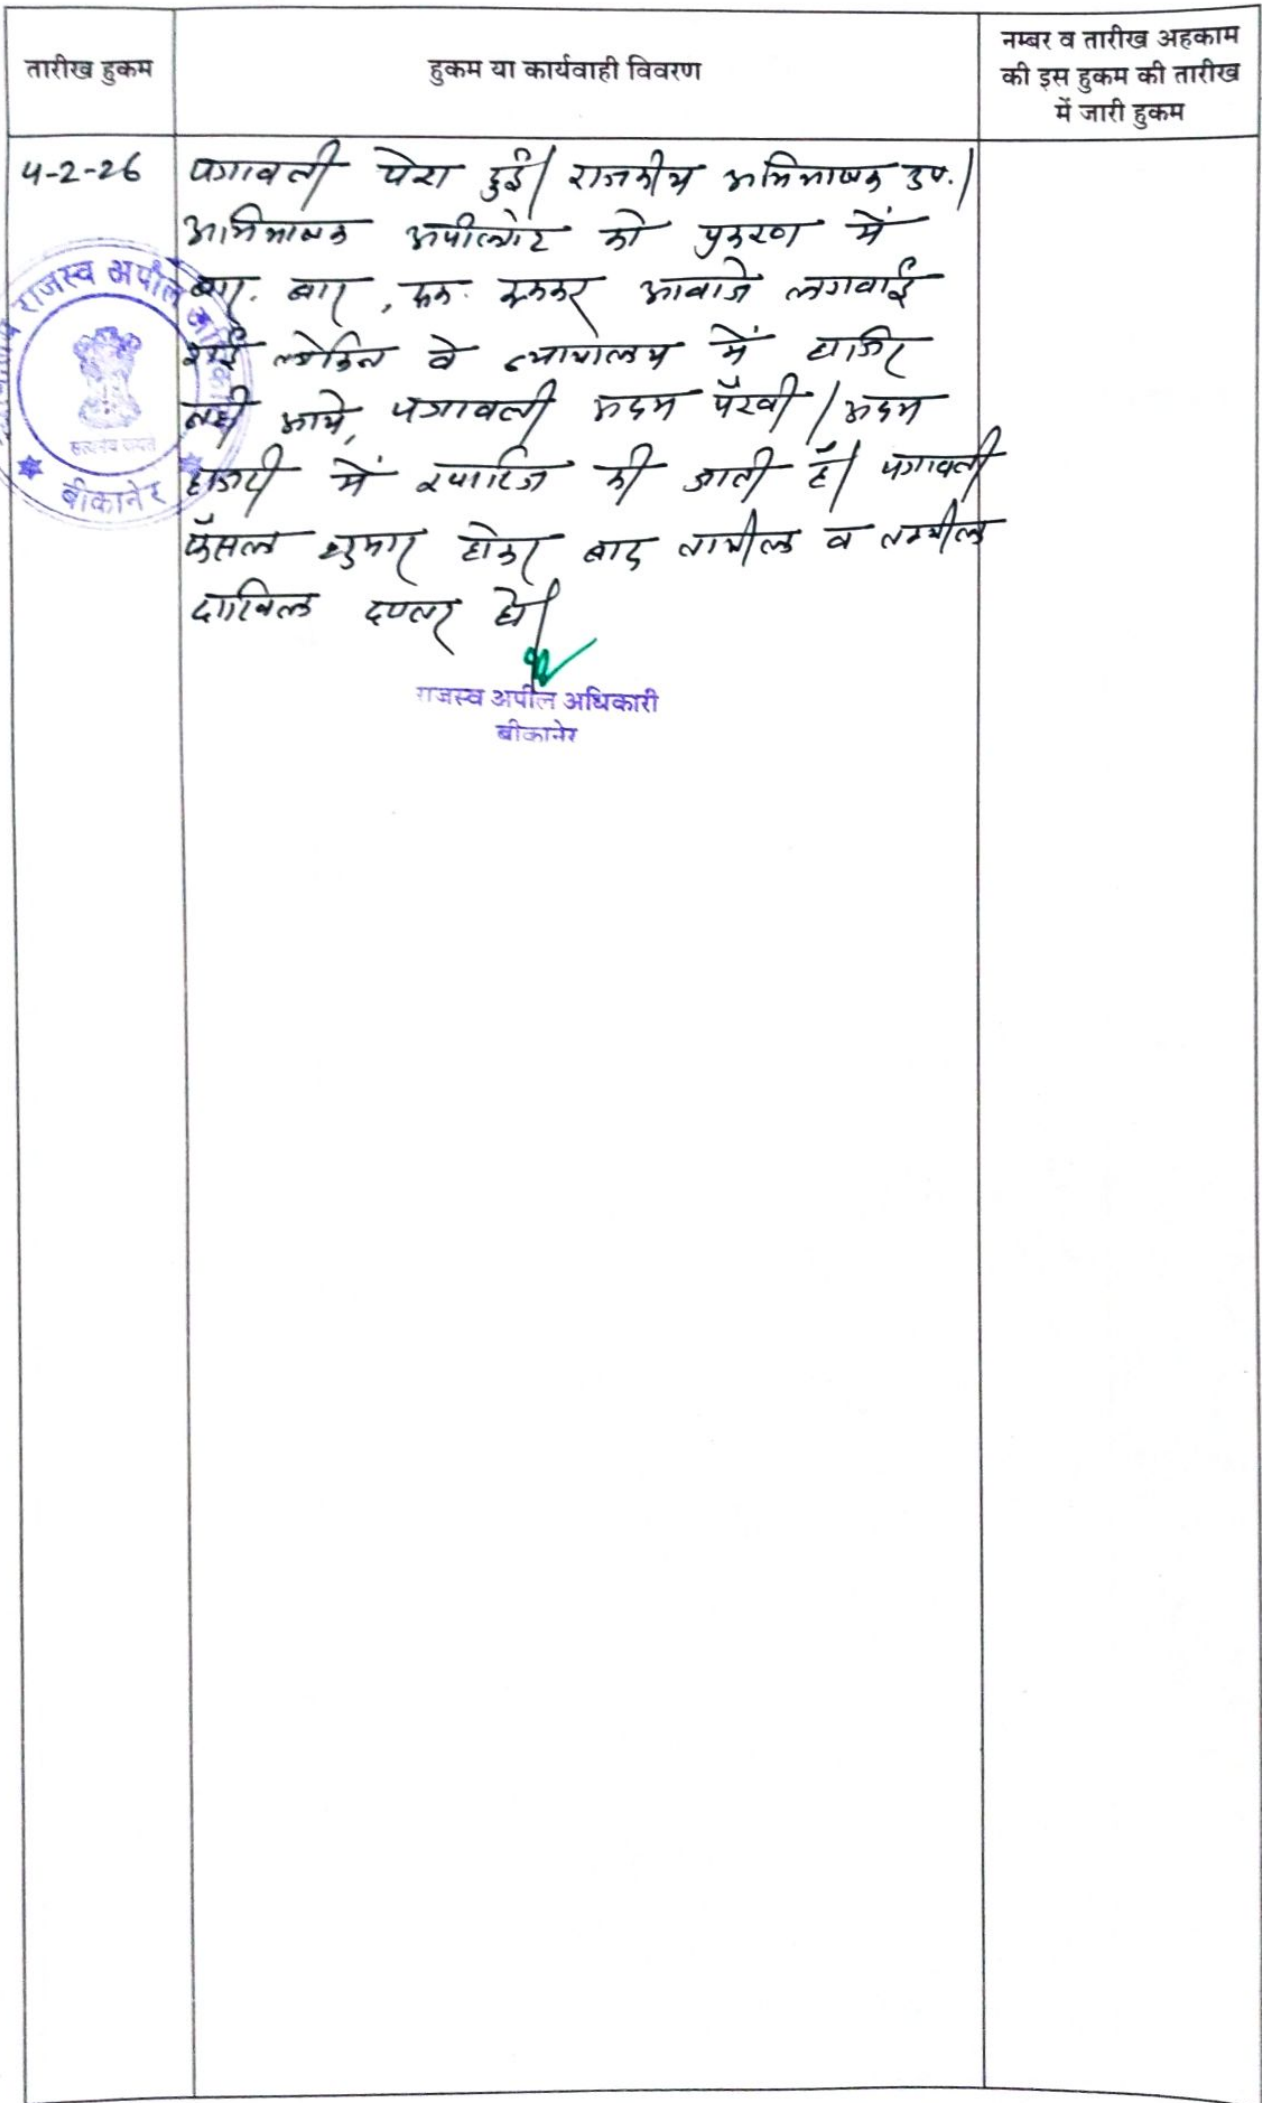 तारीख हुकम
हुकम या कार्यवाही विवरण
नम्बर व तारीख अहकाम
की इस हुकम की तारीख
में जारी हुकम
4-2-26
पत्रावली पेश हुई। राजकीय अभिभाषक उप.।
अभिभाषक अपीलांट को प्रकरण में
बार. बार, रूक. रूककर आवाजे लगवाई
गई लेकिन वे न्यायालय में हाजिर
नही आये, पत्रावली अदम पैरवी / अदम
हाजरी में खारिज की जाती है। पत्रावली
फैसल शुमार होकर बाद तामील व तकमील
दाखिल दफ्तर हो।
राजस्व अपील अधिकारी
बीकानेर
राजस्व अपील
सत्यमेव जयते
बीकानेर